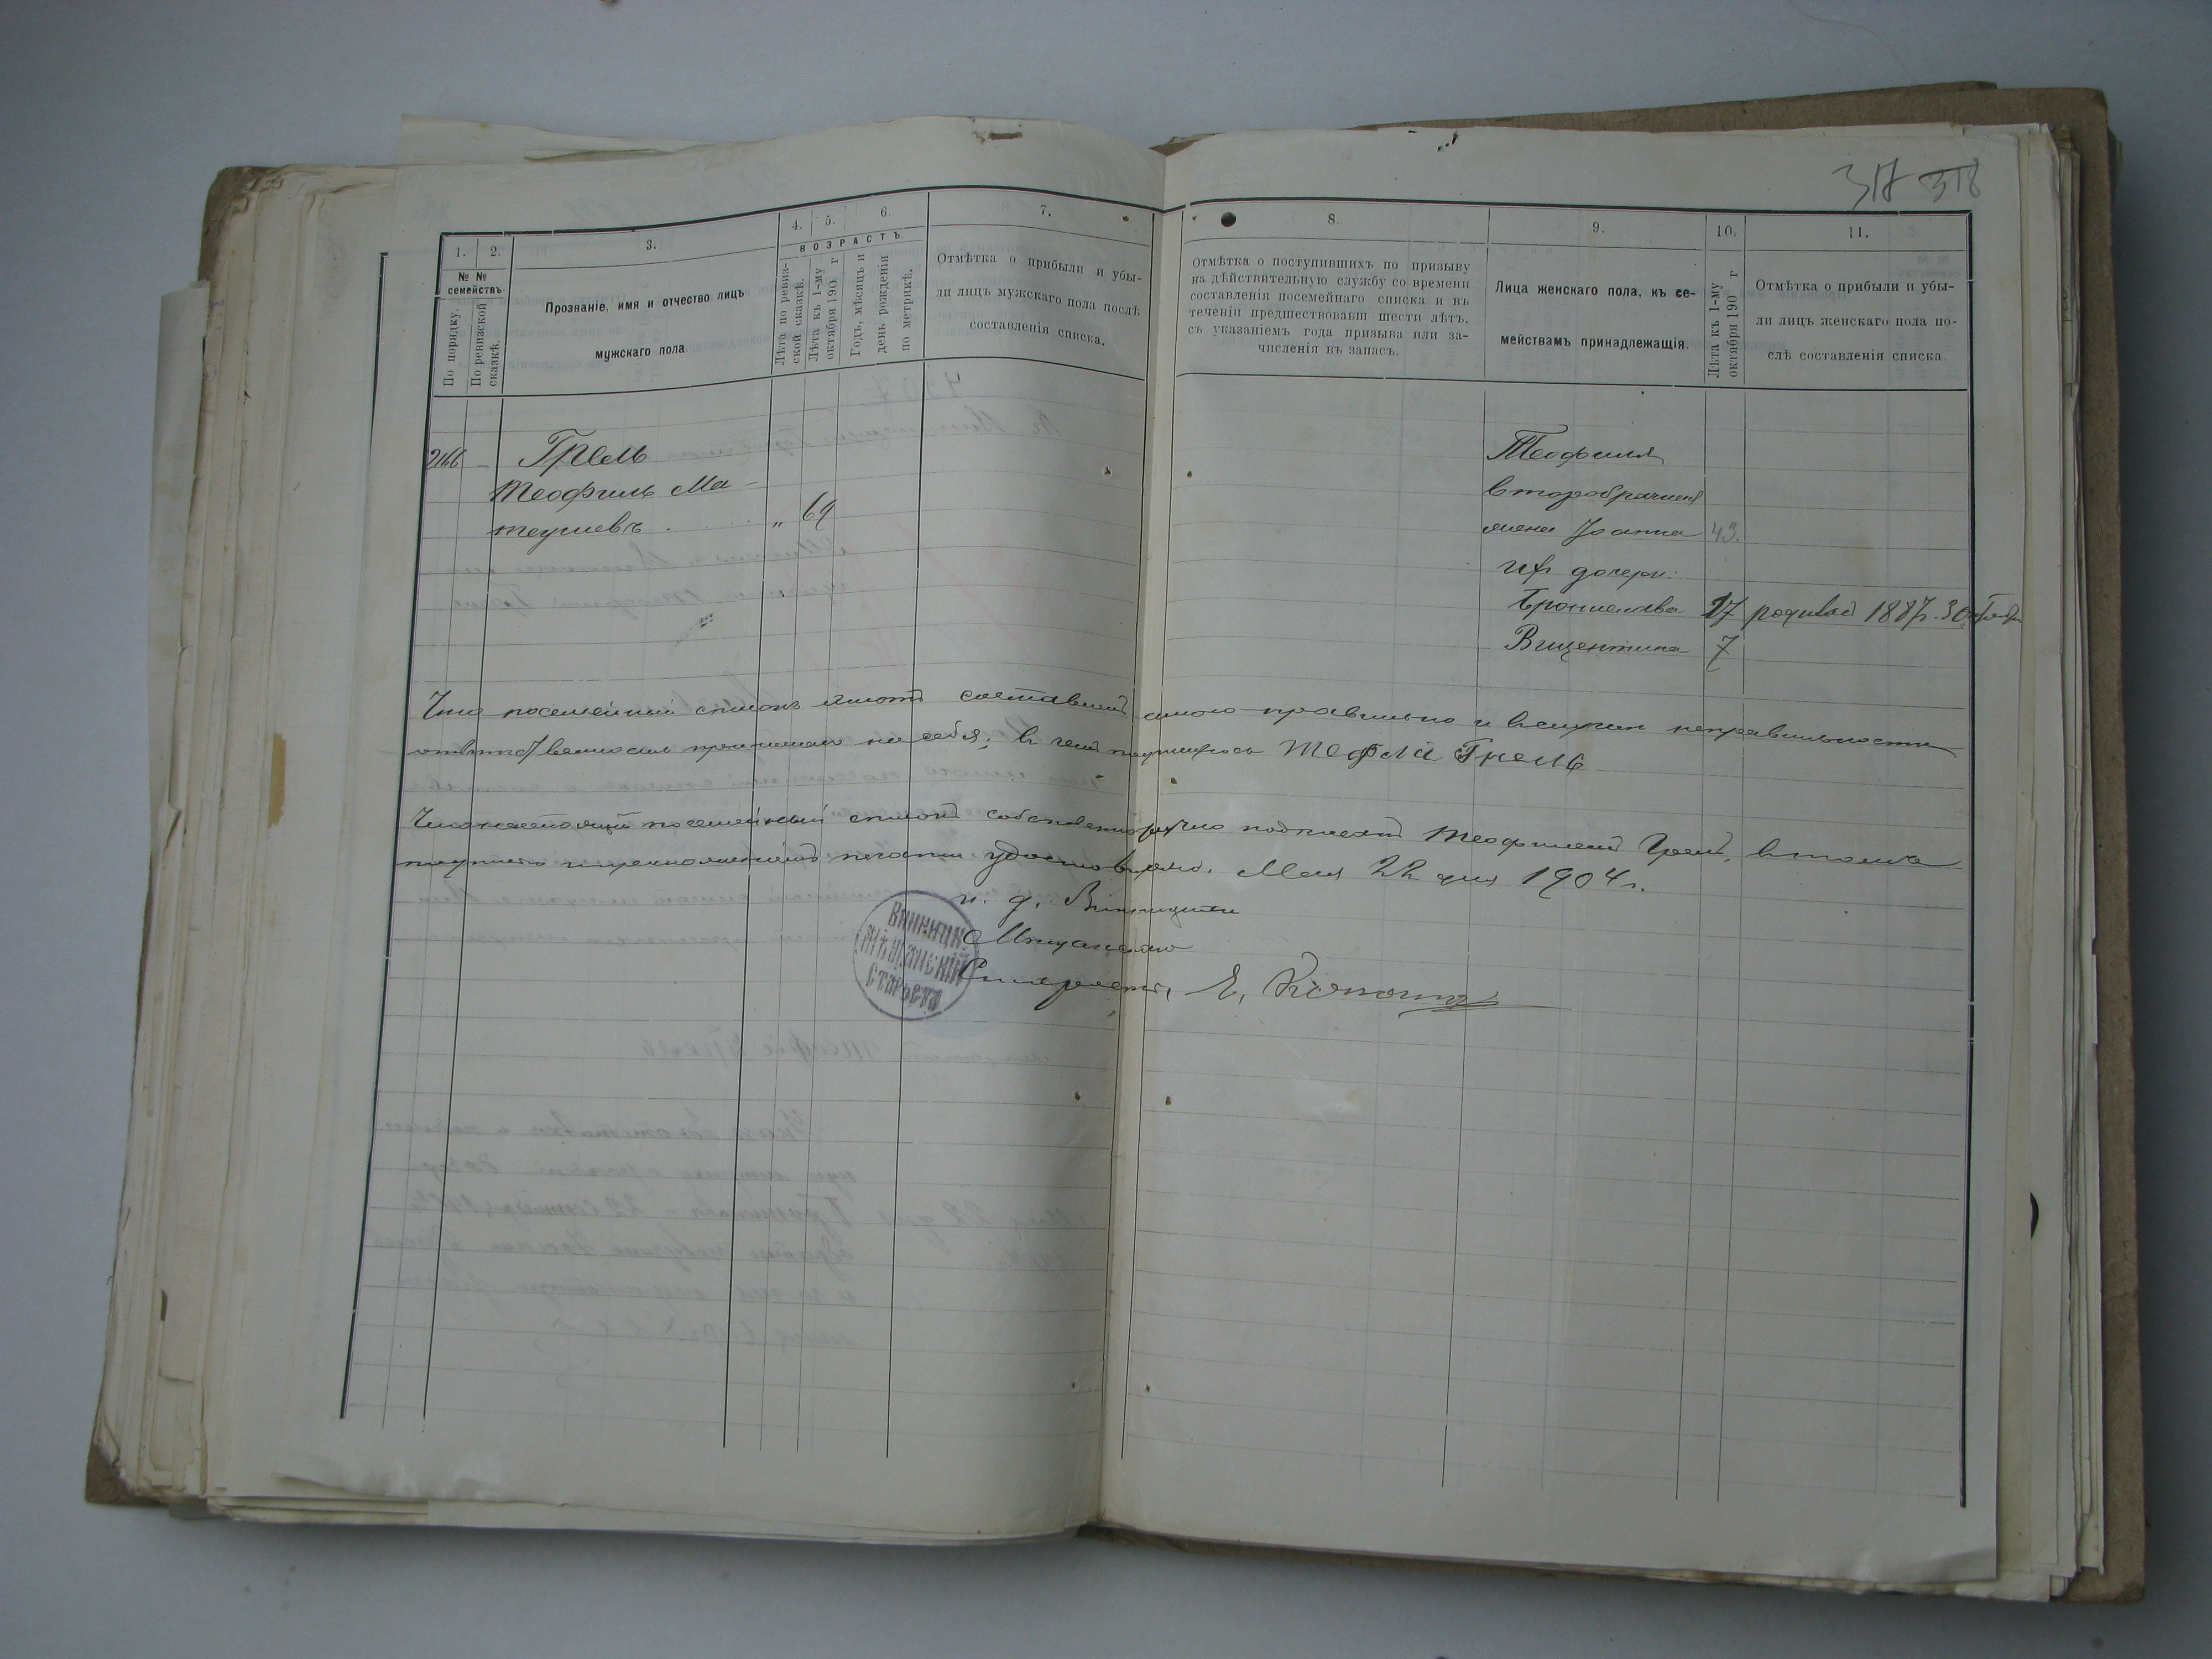 318
1.
2.
3.
4.
5.
6.
7.
№ №
семействъ.
По порядку.
По ревизской
сказкѣ.
Прозваніе, имя и отчество лицъ
мужскаго пола
ВОЗРАСТЪ.
Лѣта по ревиз-
ской сказкѣ.
Лѣта къ 1-му
октября 190 г
Годъ, мѣсяцъ и
день рожденія
по метрикѣ.
Отмѣтка о прибыли и убы-
ли лицъ мужскаго пола послѣ
составленія списка.
8.
9.
10.
11.
Отмѣтка о поступившихъ по призыву
на дѣйствительную службу со времени
составленія посемейнаго списка и въ
теченіи предшествовавш шести лѣтъ,
съ указаніемъ года призыва или за-
численія въ запасъ.
Лица женскаго пола, къ се-
мействамъ принадлежащія.
Лѣта къ 1-му
октября 190 г
Отмѣтка о прибыли и убы-
ли лицъ женскаго пола по-
слѣ составленія списка
Грель
Теофиль Ма-
теушевъ „ 64
Теофиля
второбрачная
жена Іоанна 43.
их дочери:
Бронислава 17 1887
Вицентина 7
Что посемейный списокъ этотъ составленъ мною правильно и въ случаѣ неправильности
отвѣтственность принимаю на себя; въ чемъ подпишуюсь Теофил Грель
Что настоящій посемейный списокъ собственноручно подписанъ Теофилемъ Грель, въ томъ
подписью и приложеніемъ печати удостовѣряю. Мая 22 дня 1904 г.
и. д. Винницкаго
Мѣщанскаго
Старосты, Е.
Винницк.
Мѣщанскій
Староста